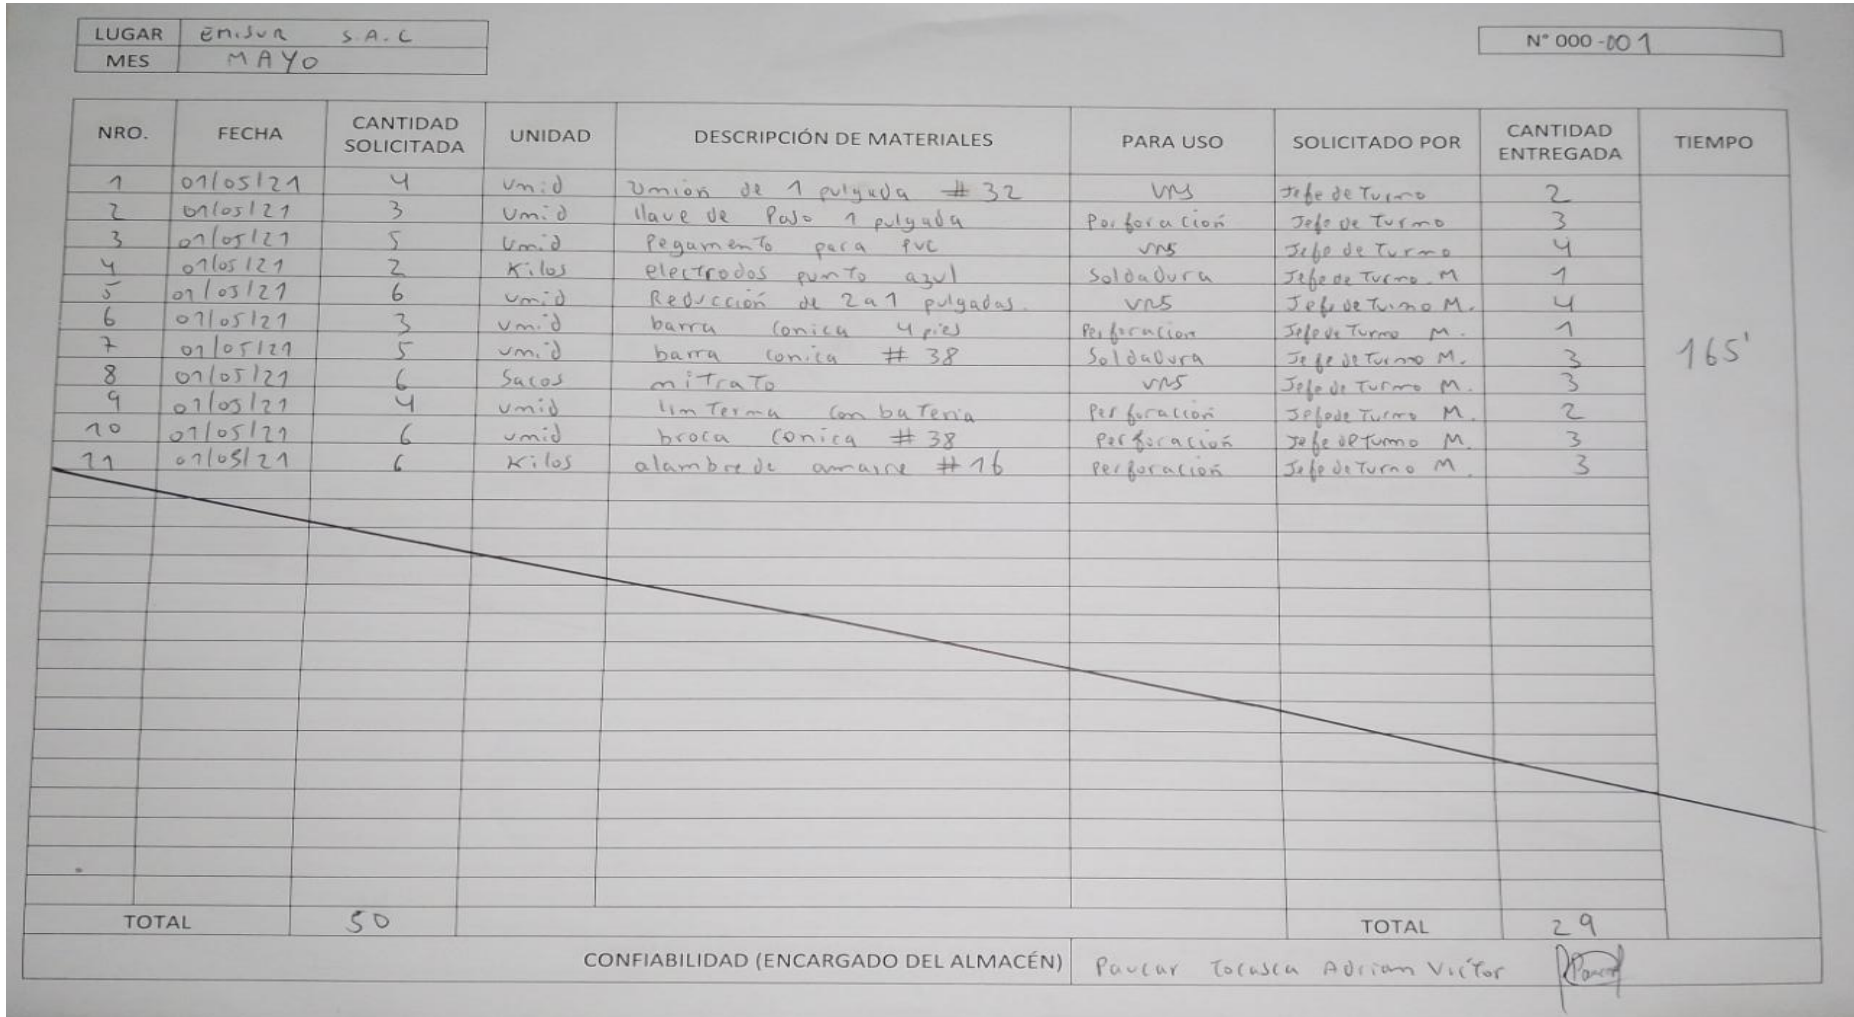 LUGAR Emisur S.A.C
N° 000-001
MES MAYO
NRO. FECHA CANTIDAD SOLICITADA UNIDAD DESCRIPCIÓN DE MATERIALES PARA USO SOLICITADO POR CANTIDAD ENTREGADA TIEMPO
1 01/05/21 4 Unid Unión de 1 pulgada # 32 VRS Jefe de Turno 2
2 01/05/21 3 Unid llave de Paso 1 pulgada Perforación Jefe de Turno 3
3 01/05/21 5 Unid Pegamento para PVC VRS Jefe de Turno 4
4 01/05/21 2 Kilos electrodos punto azul Soldadura Jefe de Turno. M 1
5 01/05/21 6 unid Reducción de 2 a 1 pulgadas. VRS Jefe de Turno M. 4
6 01/05/21 3 Unid barra conica 4 pies Perforacion Jefe de Turno M. 1
7 01/05/21 5 unid barra conica # 38 Soldadura Jefe de Turno M. 3
165'
8 01/05/21 6 Sacos nitrato VRS Jefe de Turno M. 3
9 01/05/21 4 unid linterna con bateria Perforación Jefe de Turno M. 2
10 01/05/21 6 unid broca conica # 38 Perforación Jefe de Turno M. 3
11 01/05/21 6 Kilos alambre de amarre # 16 Perforación Jefe de Turno M. 3
TOTAL 50 TOTAL 29
CONFIABILIDAD (ENCARGADO DEL ALMACÉN) Paucar Adrian Victor